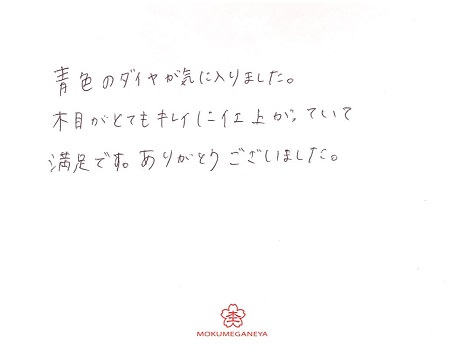 青色のダイヤが気に入りました。
木目がとてもキレイに仕上がっていて
満足です。ありがとうございました。
MOKUMEGANEYA